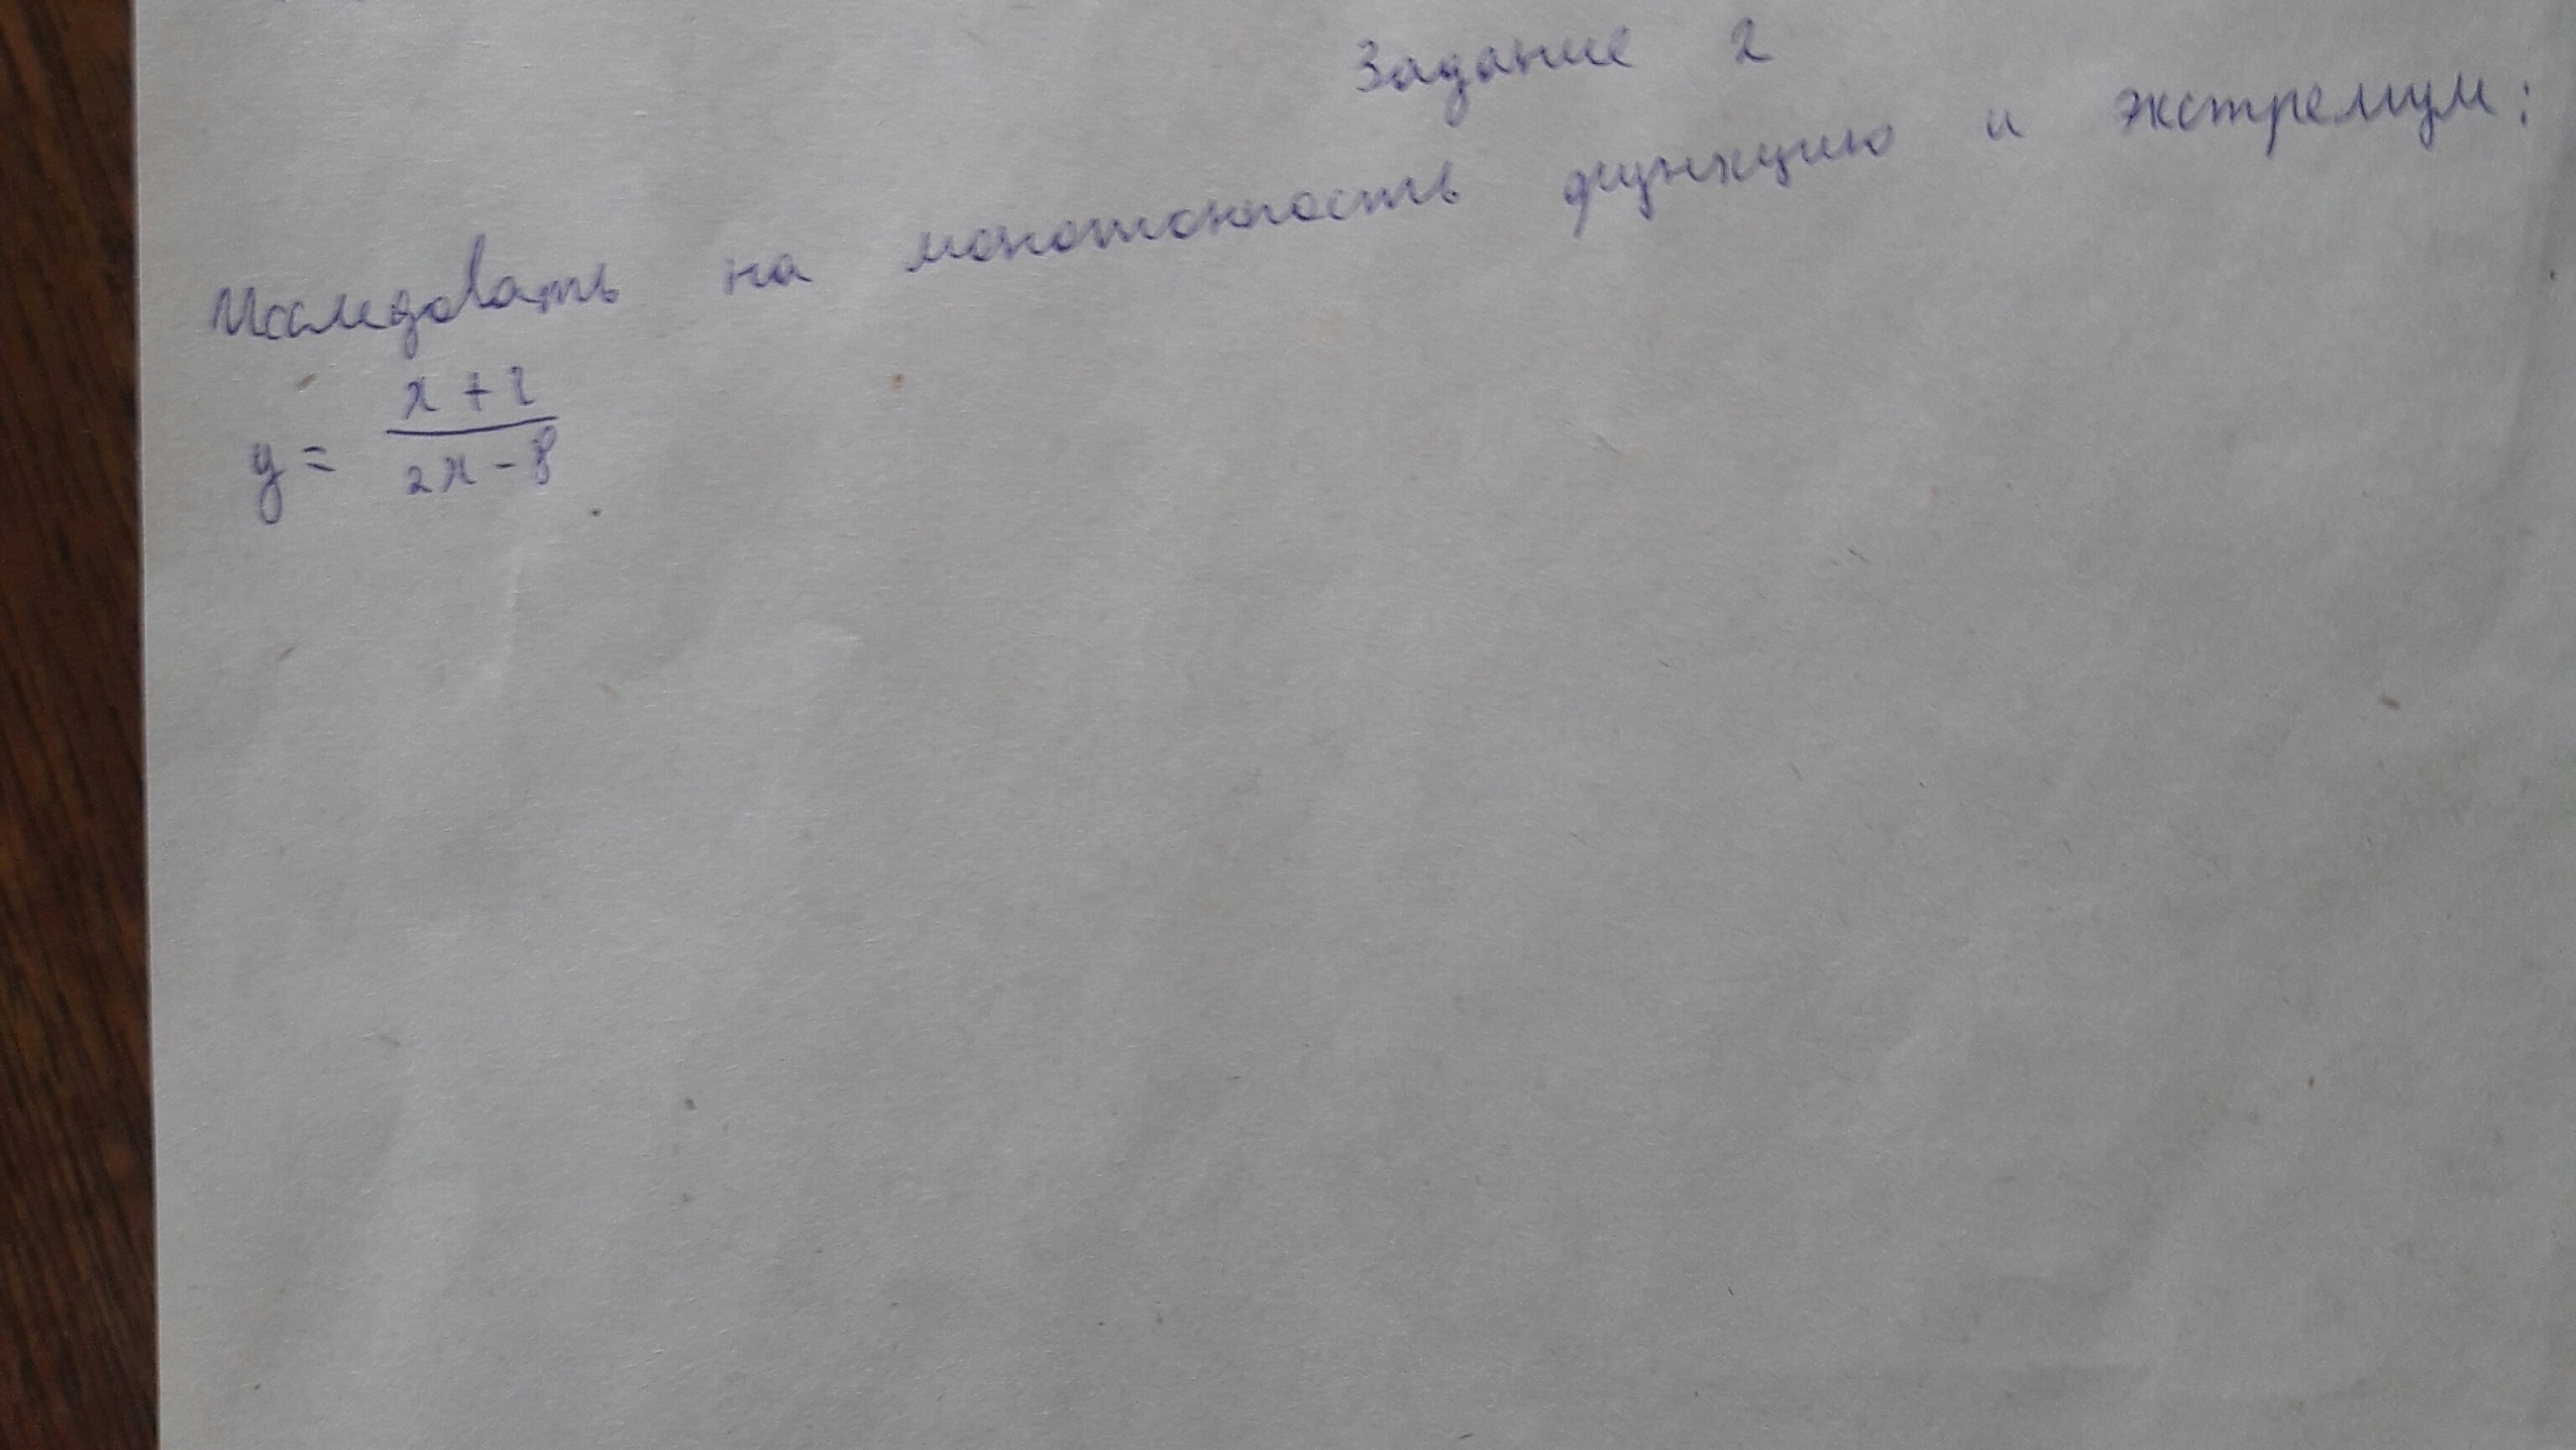 Задание 2
Исследовать на монотонность функцию и экстремум:
y = \frac{x+2}{2x-8}